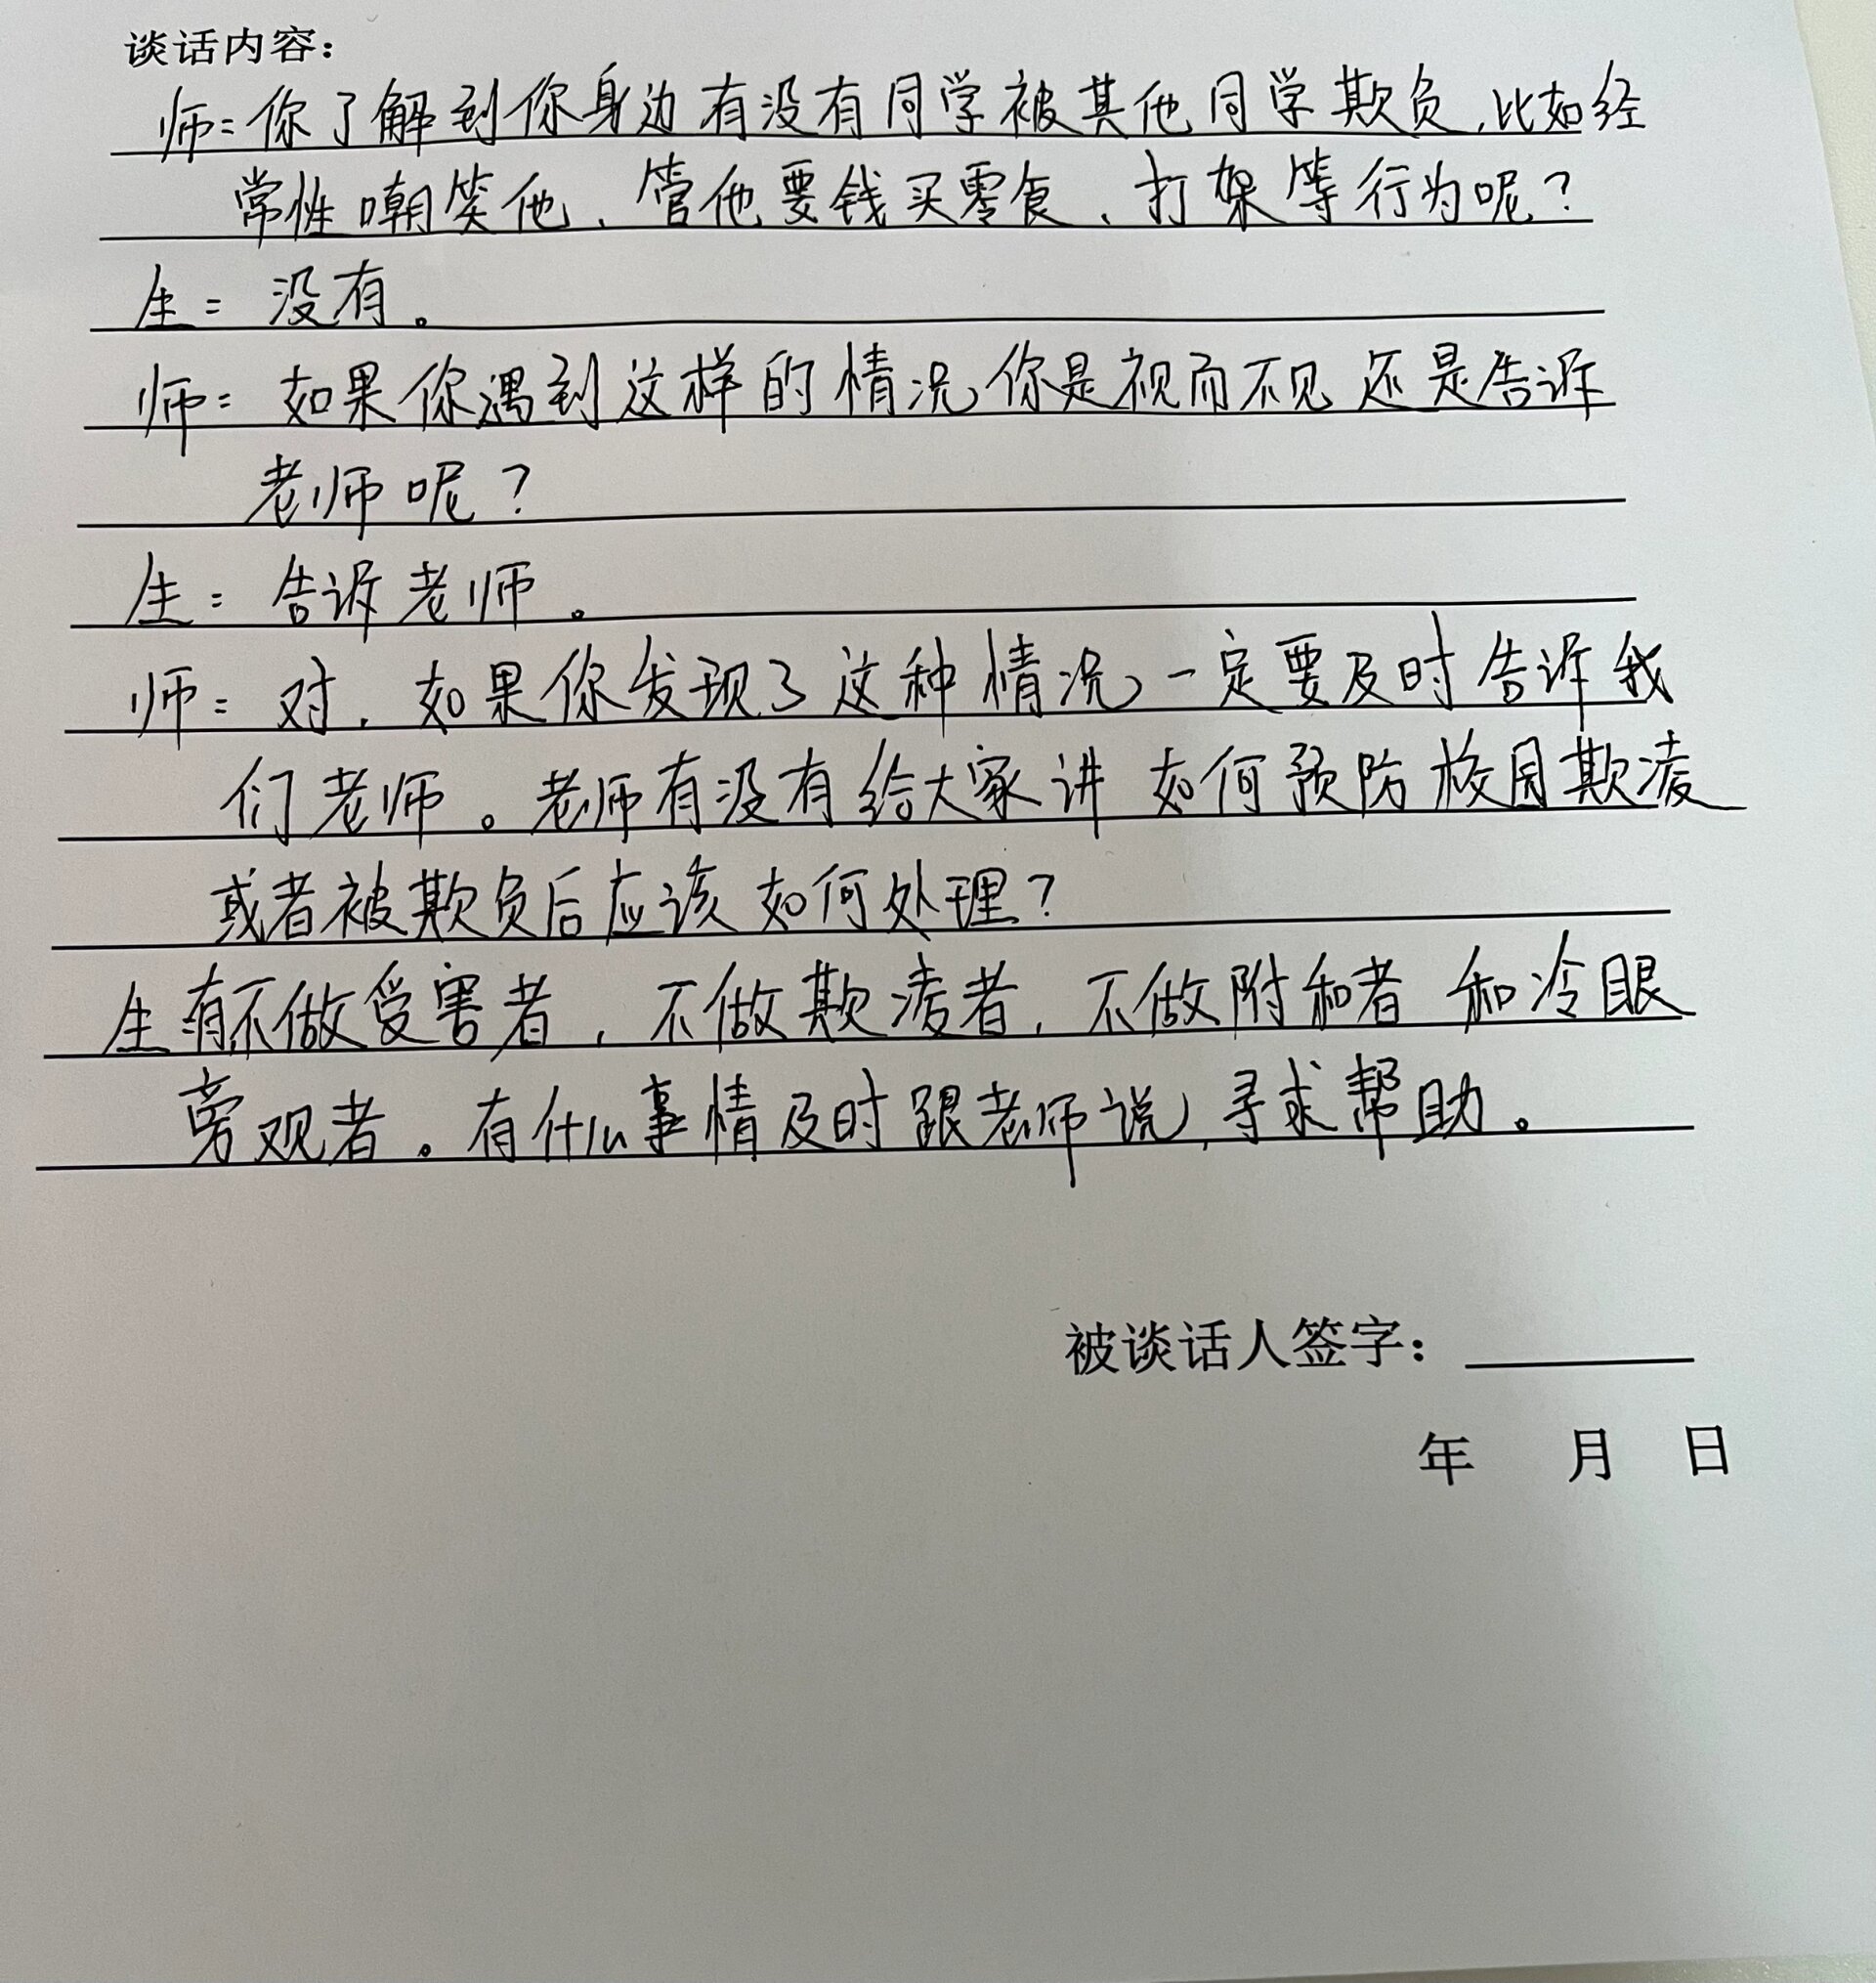 谈话内容：
师：你了解到你身边有没有同学被其他同学欺负，比如经
常性嘲笑他、管他要钱买零食、打架等行为呢？
生：没有。
师：如果你遇到这样的情况，你是视而不见还是告诉
老师呢？
生：告诉老师。
师：对，如果你发现了这种情况，一定要及时告诉我
们老师。老师有没有给大家讲如何预防校园欺凌
或者被欺负后应该如何处理？
生：有，不做受害者，不做欺凌者，不做附和者和冷眼
旁观者。有什么事情及时跟老师说，寻求帮助。
被谈话人签字：
年 月 日